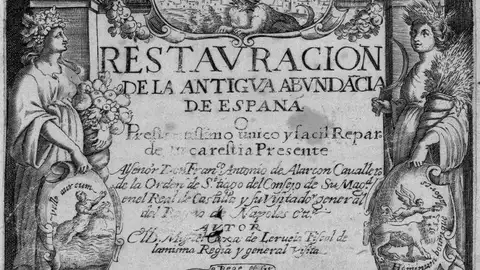 RESTAVRACION
DE LA ANTIGVA ABVNDÃCIA
DE ESPANA
O
Prestantissimo unico y facil Repar
de su carestia Presente
Al señor Don Franº Antonio de Alarcon Cavallero
de la Orden de Stiago del Consejo de Su Magd
en el Real de Castilla y su Visitador general
del Reyno de Napoles etc
AVTOR
El D. Miguel Caxa de Leruela Fiscal de
la misma Regia y general Visita